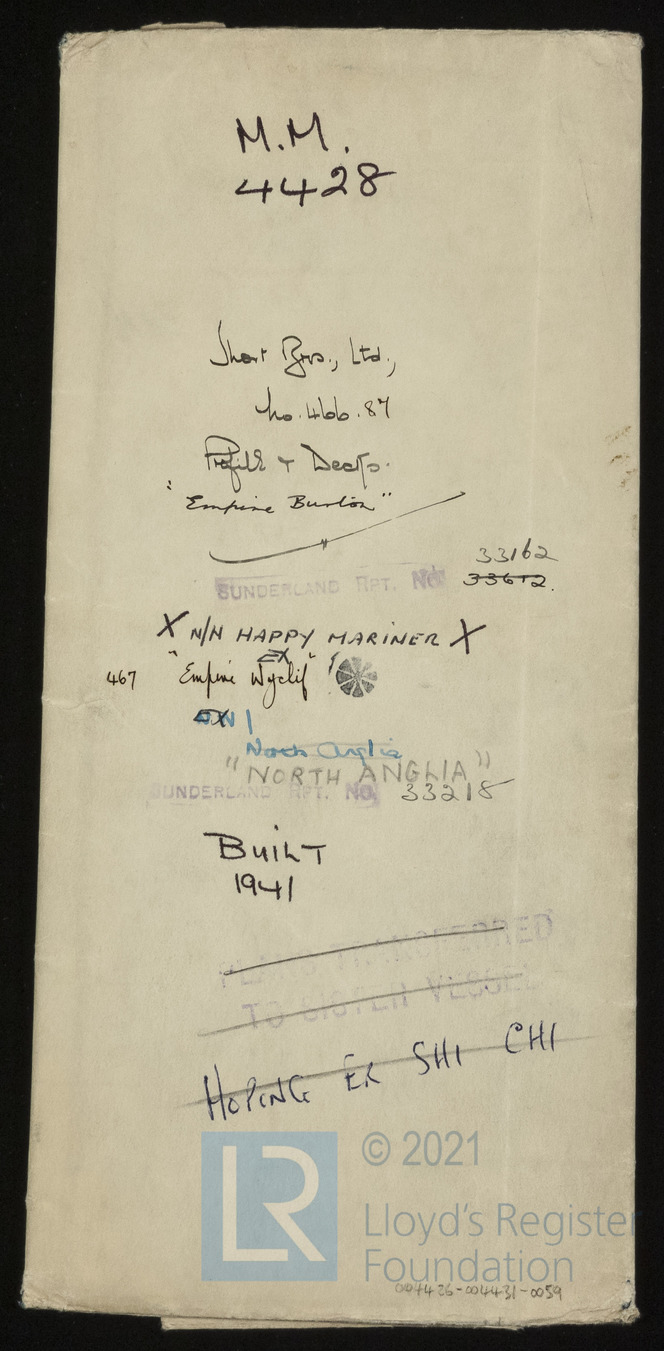 M.M.
4428
Short Bros., Ltd.,
No. 466.87
Profile & Decks.
"Empire Burton"
33162
SUNDERLAND RPT. No. 33612.
X N/N HAPPY MARINER X
EX
467 "Empire Wyclif"
EX N
North Anglia
"NORTH ANGLIA"
SUNDERLAND RPT. No. 33218
BUILT
1941
PLANS TRANSFERRED
TO SISTER VESSEL
HOPING ER SHI CHI
LR
© 2021
Lloyd's Register
Foundation
004426-004431-0059